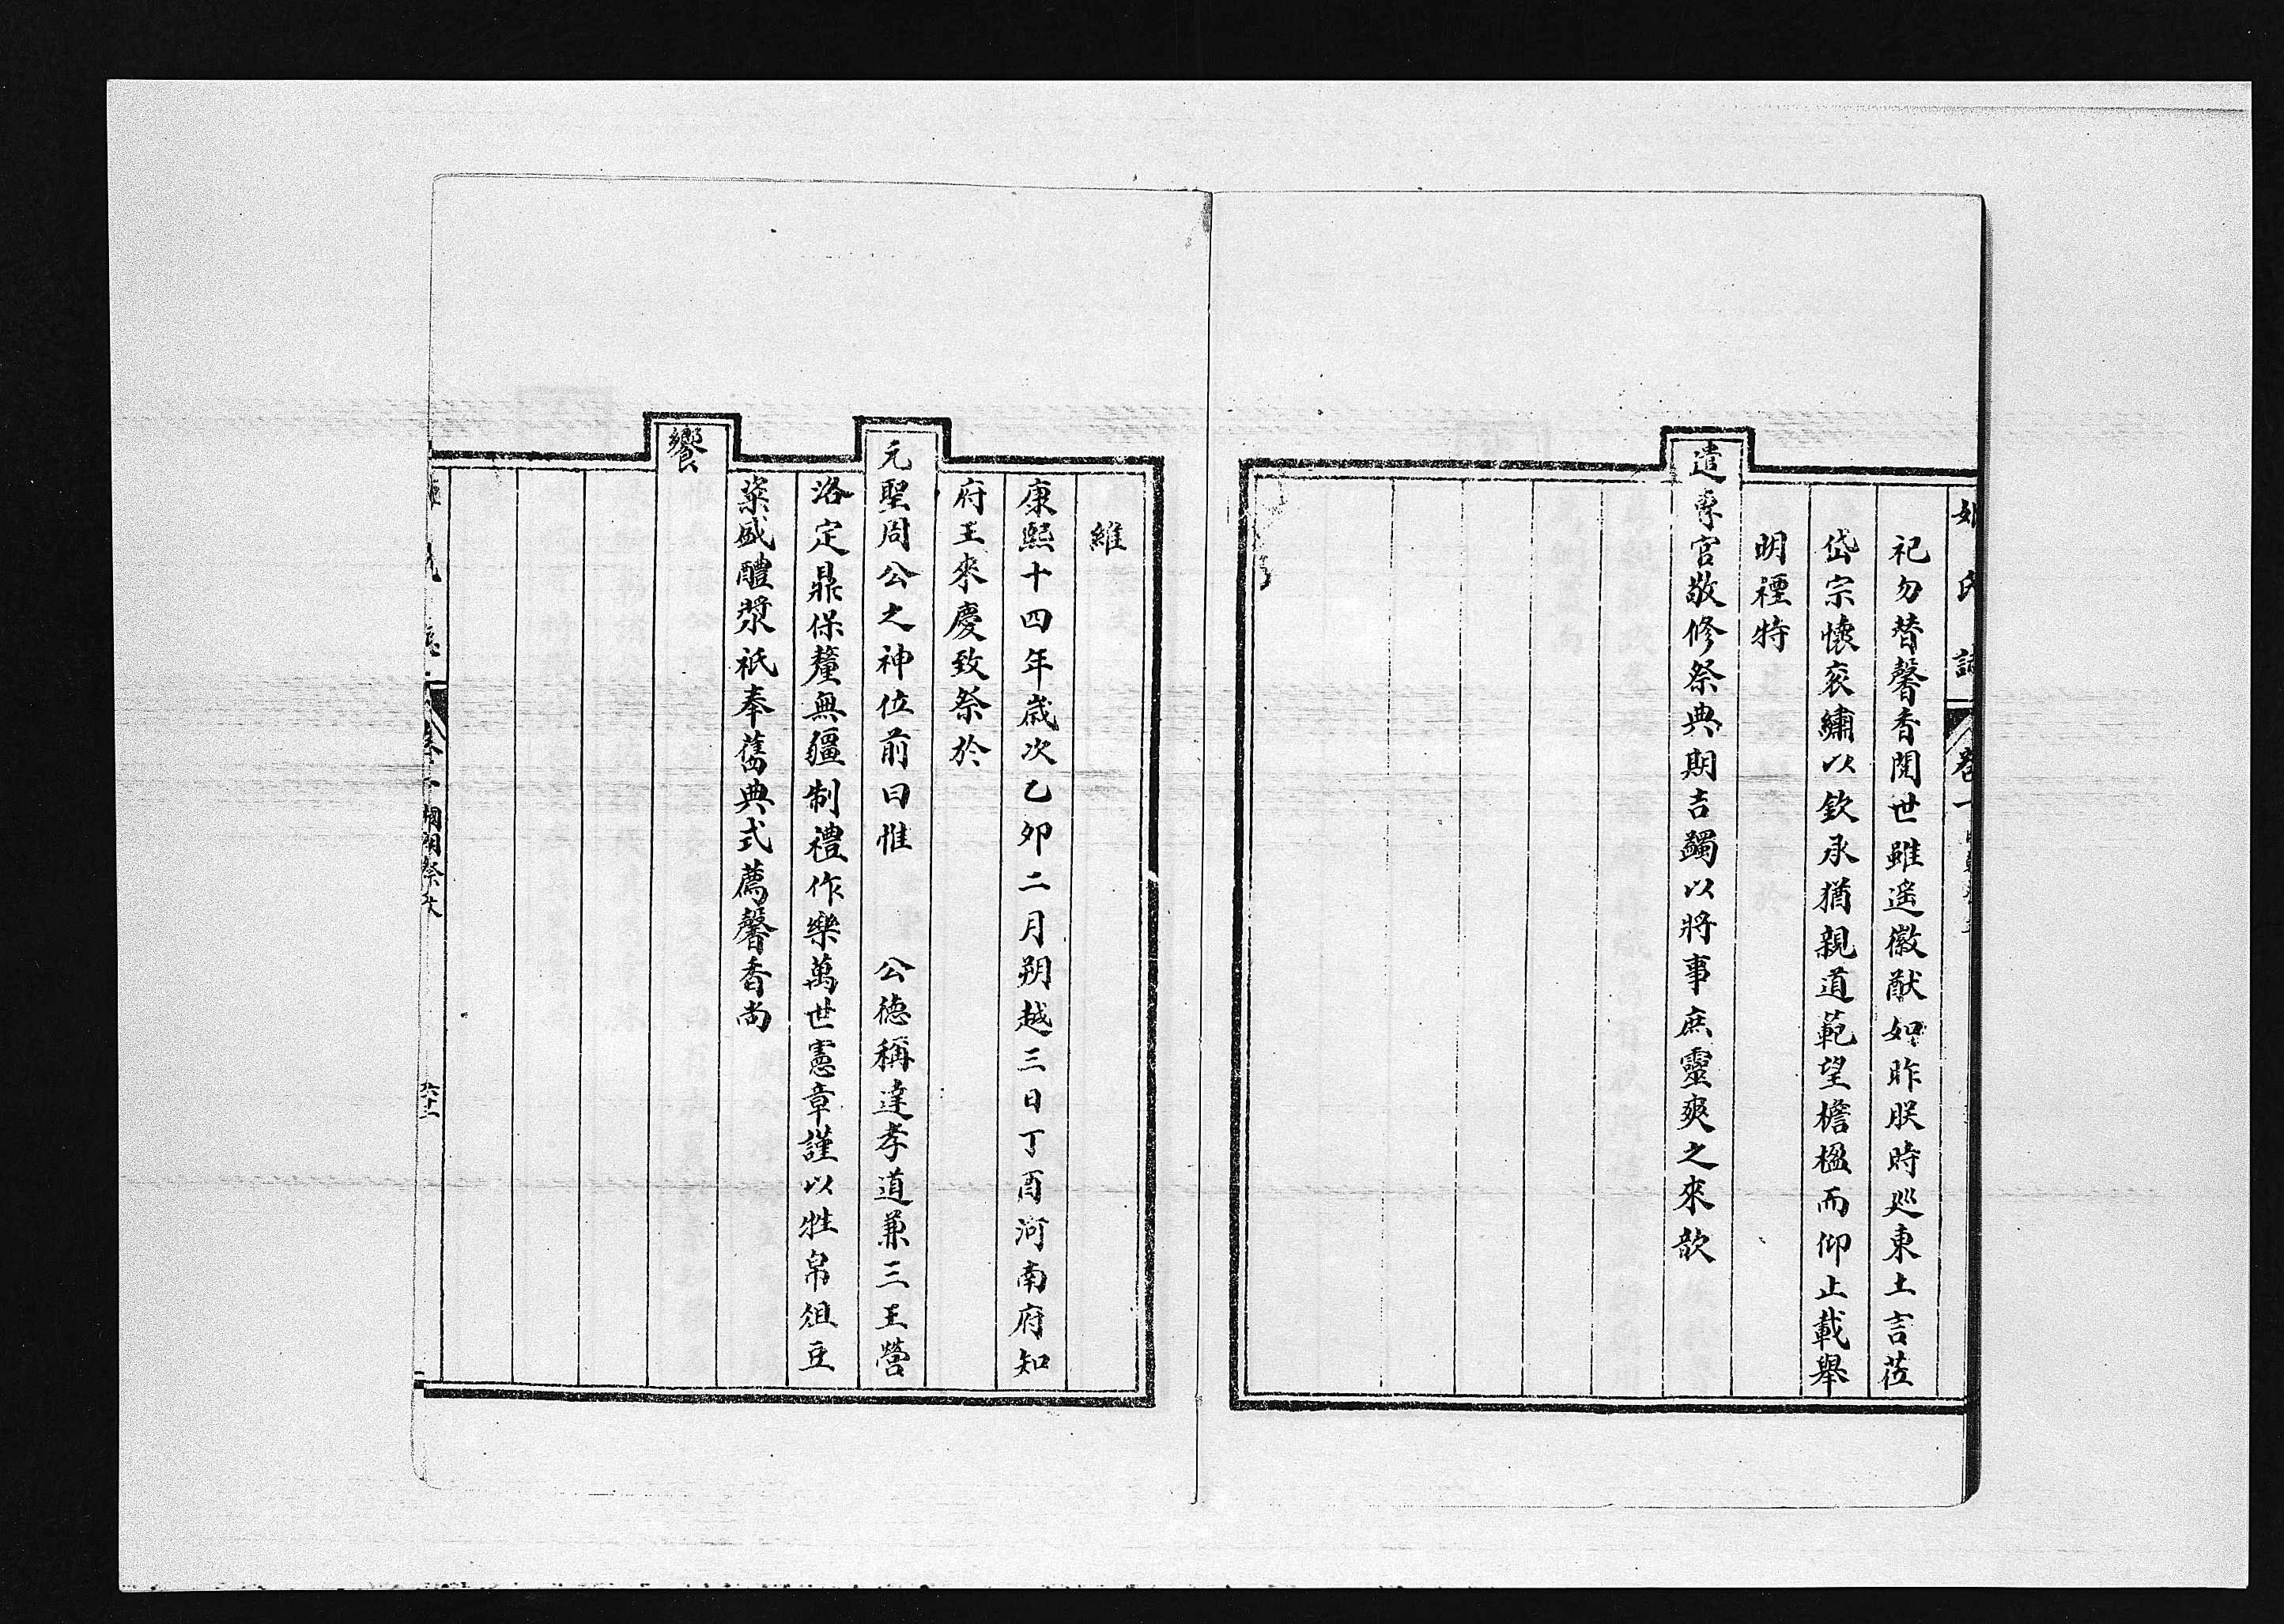 祀勿替馨香閱世雖遙徽猷如昨朕時廵東土言莅
岱宗懷衮繡以欽承猶親道範望檐楹而仰止載舉
明禋特
遣專官敬修祭典期吉蠲以將事庶靈爽之來歆
維
康熙十四年歲次乙卯二月朔越三日丁酉河南府知
府王來慶致祭於
元聖周公之神位前曰惟　公德稱達孝道兼三王營
洛定鼎保釐無疆制禮作樂萬世憲章謹以牲帛俎豆
粢盛醴漿祇奉舊典式薦馨香尚
饗